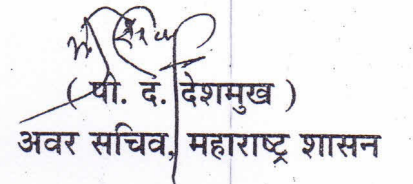 ( पी. द. देशमुख )
अवर सचिव, महाराष्ट्र शासन